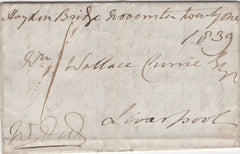 Haydon Bridge November twenty one
1839
Wm Wallace Currie Esqr
Liverpool